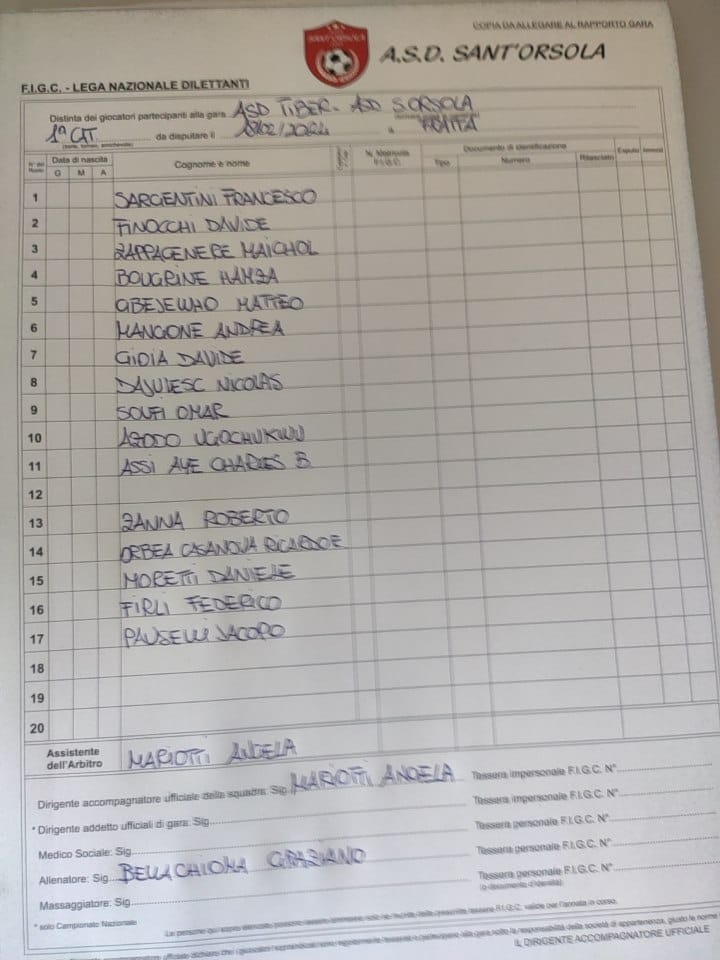 COPIA DA ALLEGARE AL RAPPORTO GARA
A.S.D. SANT'ORSOLA
F.I.G.C. - LEGA NAZIONALE DILETTANTI
Distinta dei giocatori partecipanti alla gara ASD TIBER - ASD S.ORSOLA
1ª CAT. da disputare il 18/02/2024 a FRATTA
Data di nascita Cognome e nome N. Matricola F.I.G.C. Documento di identificazione
G M A Tipo Numero Rilasciato
1 SARGENTINI FRANCESCO
2 FINOCCHI DAVIDE
3 ZAPPACENERE MAICHOL
4 BOUGRINE HAMZA
5 OBESEWHO MATTEO
6 MANGONE ANDREA
7 GIOIA DAVIDE
8 NICOLAS
9 SOUFI OMAR
10 AZODO UGOCHUKWU
11 ASSI AYE CHARLES B.
12
13 ZANNA ROBERTO
14 ORBEA CASANOVA RICARDO E
15 MORETTI DANIELE
16 FIRLI FEDERICO
17 PAUSELLI JACOPO
18
19
20
Assistente dell'Arbitro MARIOTTI ANGELA
Dirigente accompagnatore ufficiale della squadra: Sig. MARIOTTI ANGELA Tessera impersonale F.I.G.C. N°
* Dirigente addetto ufficiali di gara: Sig. Tessera impersonale F.I.G.C. N°
Medico Sociale: Sig. Tessera personale F.I.G.C. N°
Allenatore: Sig. BELLACHIOMA GRAZIANO Tessera personale F.I.G.C. N°
Massaggiatore: Sig. Tessera personale F.I.G.C. N°
(o documento d'identità)
* solo Campionato Nazionale
IL DIRIGENTE ACCOMPAGNATORE UFFICIALE